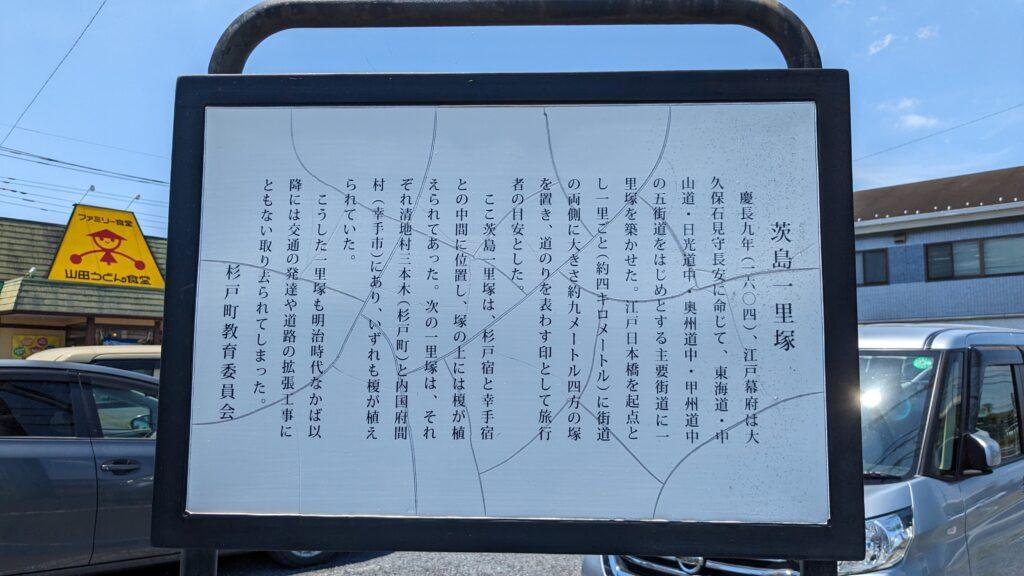 茨島一里塚
慶長九年(一六〇四)、江戸幕府は大
久保石見守長安に命じて、東海道・中
山道・日光道中、奥州道中・甲州道中
の五街道をはじめとする主要街道に一
里塚を築かせた。江戸日本橋を起点と
し一里ごと(約四キロメートル)に街道
の両側に大きさ約九メートル四方の塚
を置き、道のりを表わす印として旅行
者の目安とした。
ここ茨島一里塚は、杉戸宿と幸手宿
との中間に位置し、塚の上には榎が植
えられてあった。次の一里塚は、それ
ぞれ清地村三本木(杉戸町)と内国府間
村(幸手市)にあり、いずれも榎が植え
られていた。
こうした一里塚も明治時代なかば以
降には交通の発達や道路の拡張工事に
ともない取り去られてしまった。
杉戸町教育委員会
ファミリー食堂
山田うどん食堂